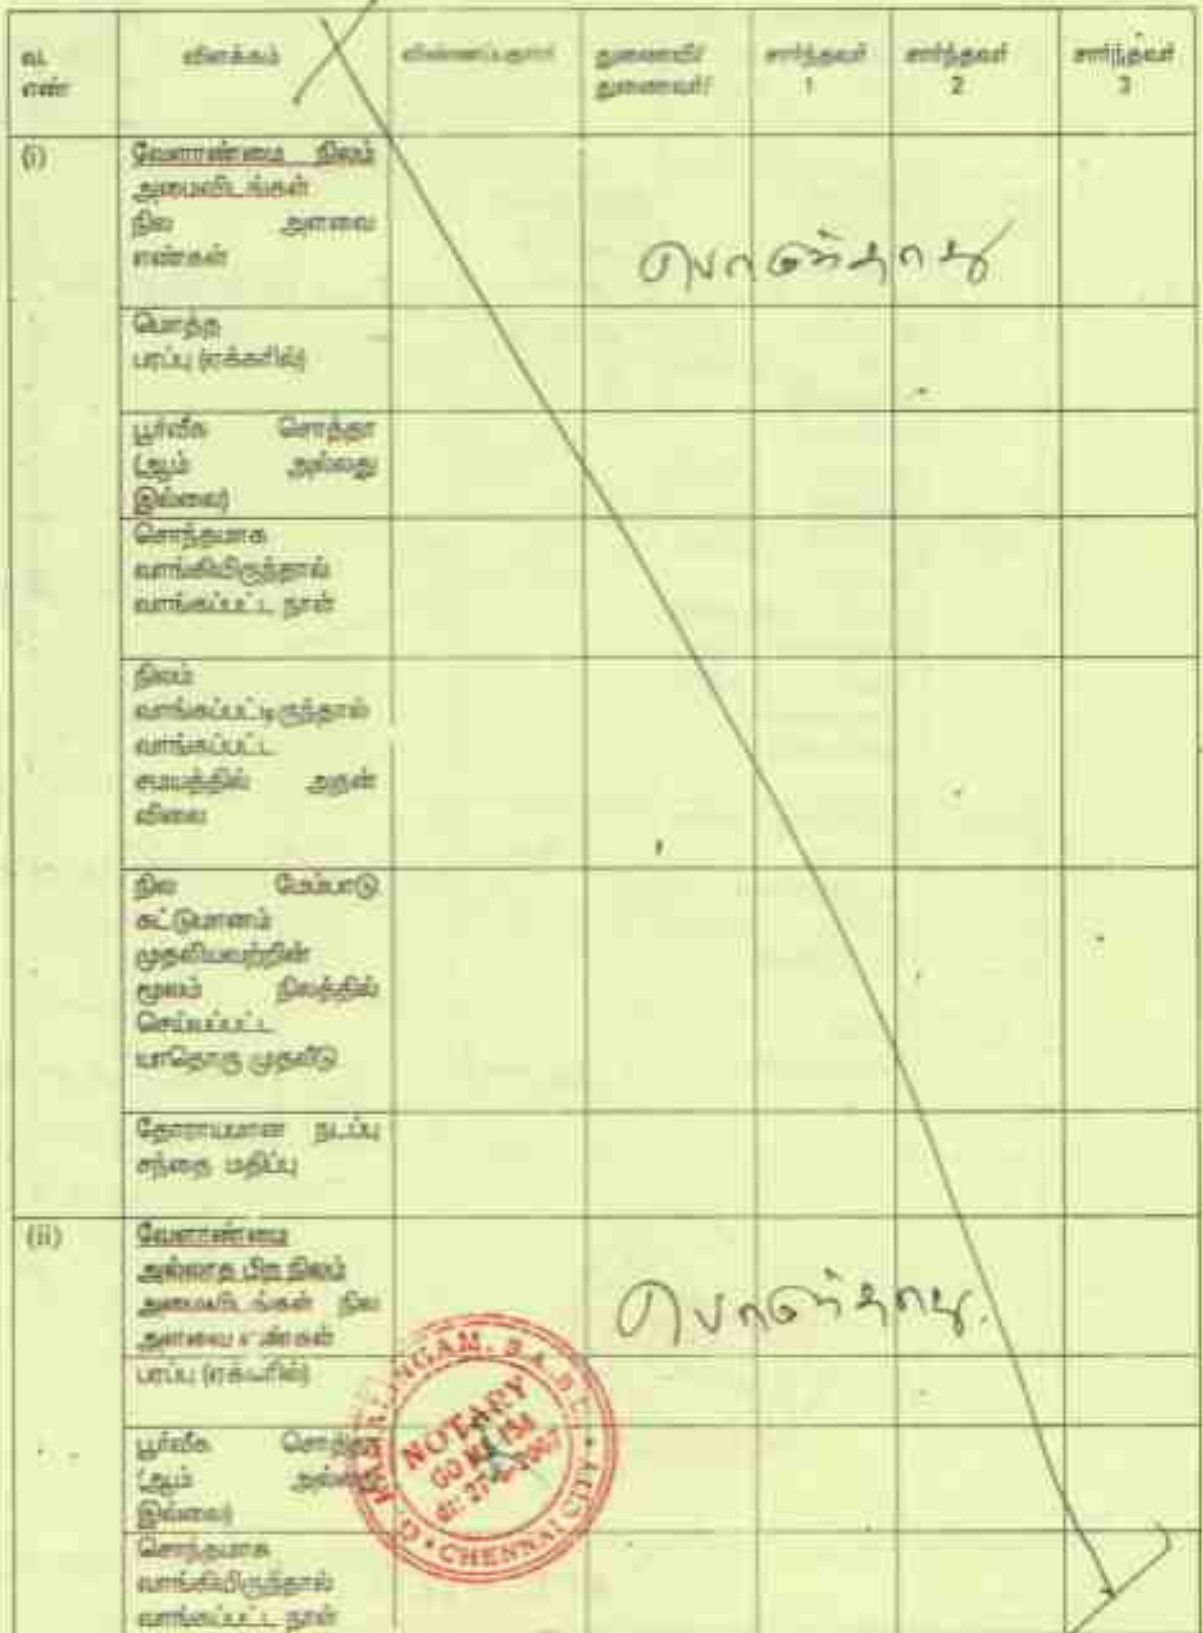 வ. எண் விளக்கம் விண்ணப்பதாரர் துணைவி/ துணைவர்/ சார்ந்தவர் 1 சார்ந்தவர் 2 சார்ந்தவர் 3
(i) வேளாண்மை நிலம்
அமைவிடங்கள்
நில அளவை
எண்கள்
பொருந்தாது
மொத்த
பரப்பு (ஏக்கரில்)
பூர்வீக சொத்தா
(ஆம் அல்லது
இல்லை)
சொந்தமாக
வாங்கியிருந்தால்
வாங்கப்பட்ட நாள்
நிலம்
வாங்கப்பட்டிருந்தால்
வாங்கப்பட்ட
சமயத்தில் அதன்
விலை
நில மேம்பாடு
கட்டுமானம்
முதலியவற்றின்
மூலம் நிலத்தில்
செய்யப்பட்ட
யாதொரு முதலீடு
தோராயமான நடப்பு
சந்தை மதிப்பு
(ii) வேளாண்மை
அல்லாத பிற நிலம்
அமைவிடங்கள் நில
அளவை எண்கள்
பொருந்தாது.
பரப்பு (ஏக்கரில்)
பூர்வீக சொத்தா
(ஆம் அல்லது
இல்லை)
சொந்தமாக
வாங்கியிருந்தால்
வாங்கப்பட்ட நாள்
B.A.B.L.
NOTARY
CHENNAI CITY